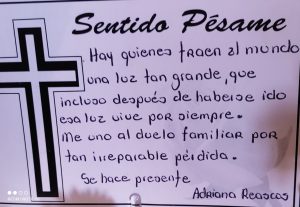 Sentido Pésame
Hay quienes traen al mundo
una luz tan grande, que
incluso después de haberse ido
esa luz vive por siempre.
Me uno al duelo familiar por
tan irreparable pérdida.
Se hace presente
Adriana Reascos